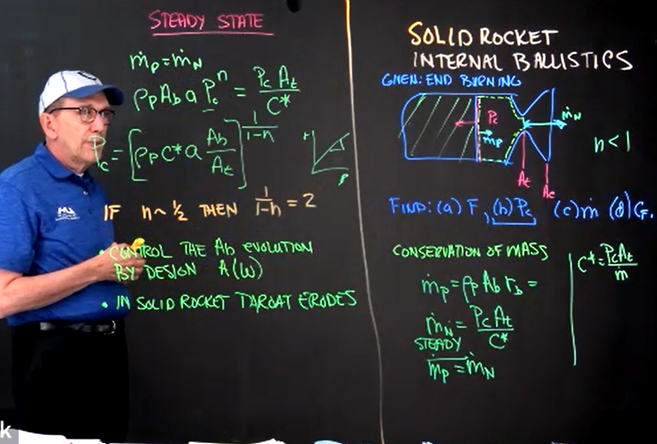 STEADY STATE
ṁp = ṁN
ρp Ab a Pc^n = Pc At / C*
Pc = [ρp C* a Ab / At]^(1/(1-n))
IF n ~ 1/2 THEN 1/(1-n) = 2
• CONTROL THE Ab EVOLUTION
BY DESIGN A(W)
• IN SOLID ROCKET THROAT ERODES
SOLID ROCKET
INTERNAL BALLISTICS
GIVEN: END BURNING
Pc
ṁp
ṁN
n < 1
At
Ae
FIND: (a) F, (b) Pc, (c) ṁ (d)
CONSERVATION OF MASS
ṁp = ρp Ab rb =
ṁN = Pc At / C*
STEADY
ṁp = ṁN
C* = Pc At / ṁ
k